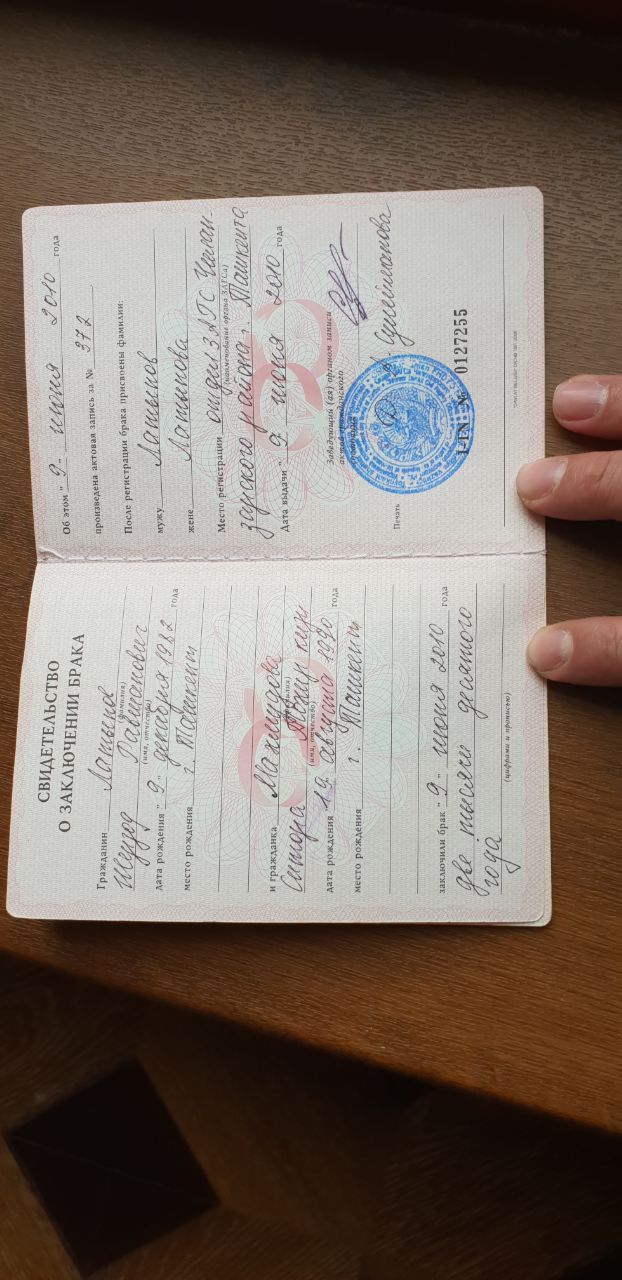 СВИДЕТЕЛЬСТВО
О ЗАКЛЮЧЕНИИ БРАКА
Гражданин Латыпов
(фамилия)
Шухрод Равшанович
(имя, отчество)
дата рождения " 9 " декабря 1982 года
место рождения г. Ташкент
и гражданка Махмудова
(фамилия)
Ситора кизи
(имя, отчество)
дата рождения 19 августа 1990 года
место рождения г. Ташкент
заключили брак " 9 " июня 2010 года
две тысячи десятого
года
(цифрами и прописью)
Об этом " 9 " июня 2010 года
произведена актовая запись за № 372
После регистрации брака присвоены фамилии:
мужу Латыпов
жене Латыпова
Место регистрации отдел ЗАГС Чилан-
(наименование органа ЗАГСа)
зарского района г. Ташкента
Дата выдачи " 9 " июня 2010 года
Заведующий (ая) органом записи
актов гражданского
Печать Сулейманова
I-TN № 0127255